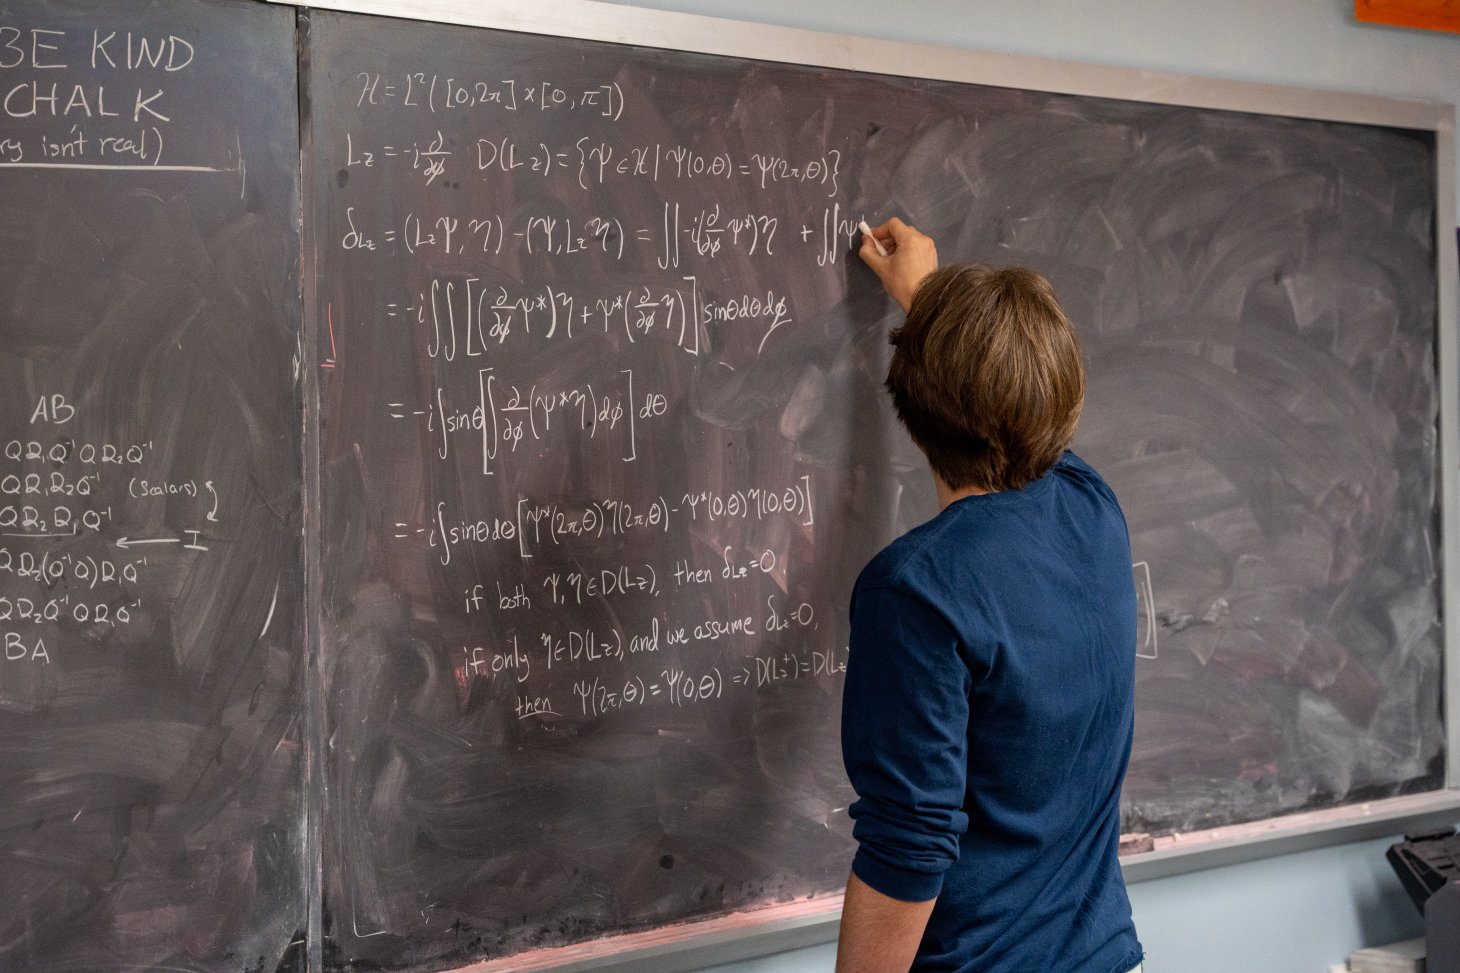 BE KIND
CHALK
isn't real)
AB
QD₁Q⁻¹QD₂Q⁻¹
QD₁D₂Q⁻¹ (Scalars)
QD₂D₁Q⁻¹
I
QD₂(Q⁻¹Q)D₁Q⁻¹
QD₂Q⁻¹QD₁Q⁻¹
BA
ℋ = L²([0,2π]×[0,π])
L_z = -i ∂/∂φ D(L_z) = {Ψ∈ℋ | Ψ(0,θ) = Ψ(2π,θ)}
δ_{L_z} = (L_zΨ, η) - (Ψ, L_zη) = ∬ -i(∂/∂φ Ψ*)η + ∬Ψ
= -i∬[(∂/∂φ Ψ*)η + Ψ*(∂/∂φ η)] sinθdθdφ
= -i∫sinθ[∫ ∂/∂φ (Ψ*η)dφ] dθ
= -i∫sinθdθ[Ψ*(2π,θ)η(2π,θ) - Ψ*(0,θ)η(0,θ)]
if both Ψ,η∈D(L_z), then δ_{L_z}=0.
if only η∈D(L_z), and we assume δ_{L_z}=0,
then Ψ(2π,θ) = Ψ(0,θ) => D(L_z†) = D(L_z